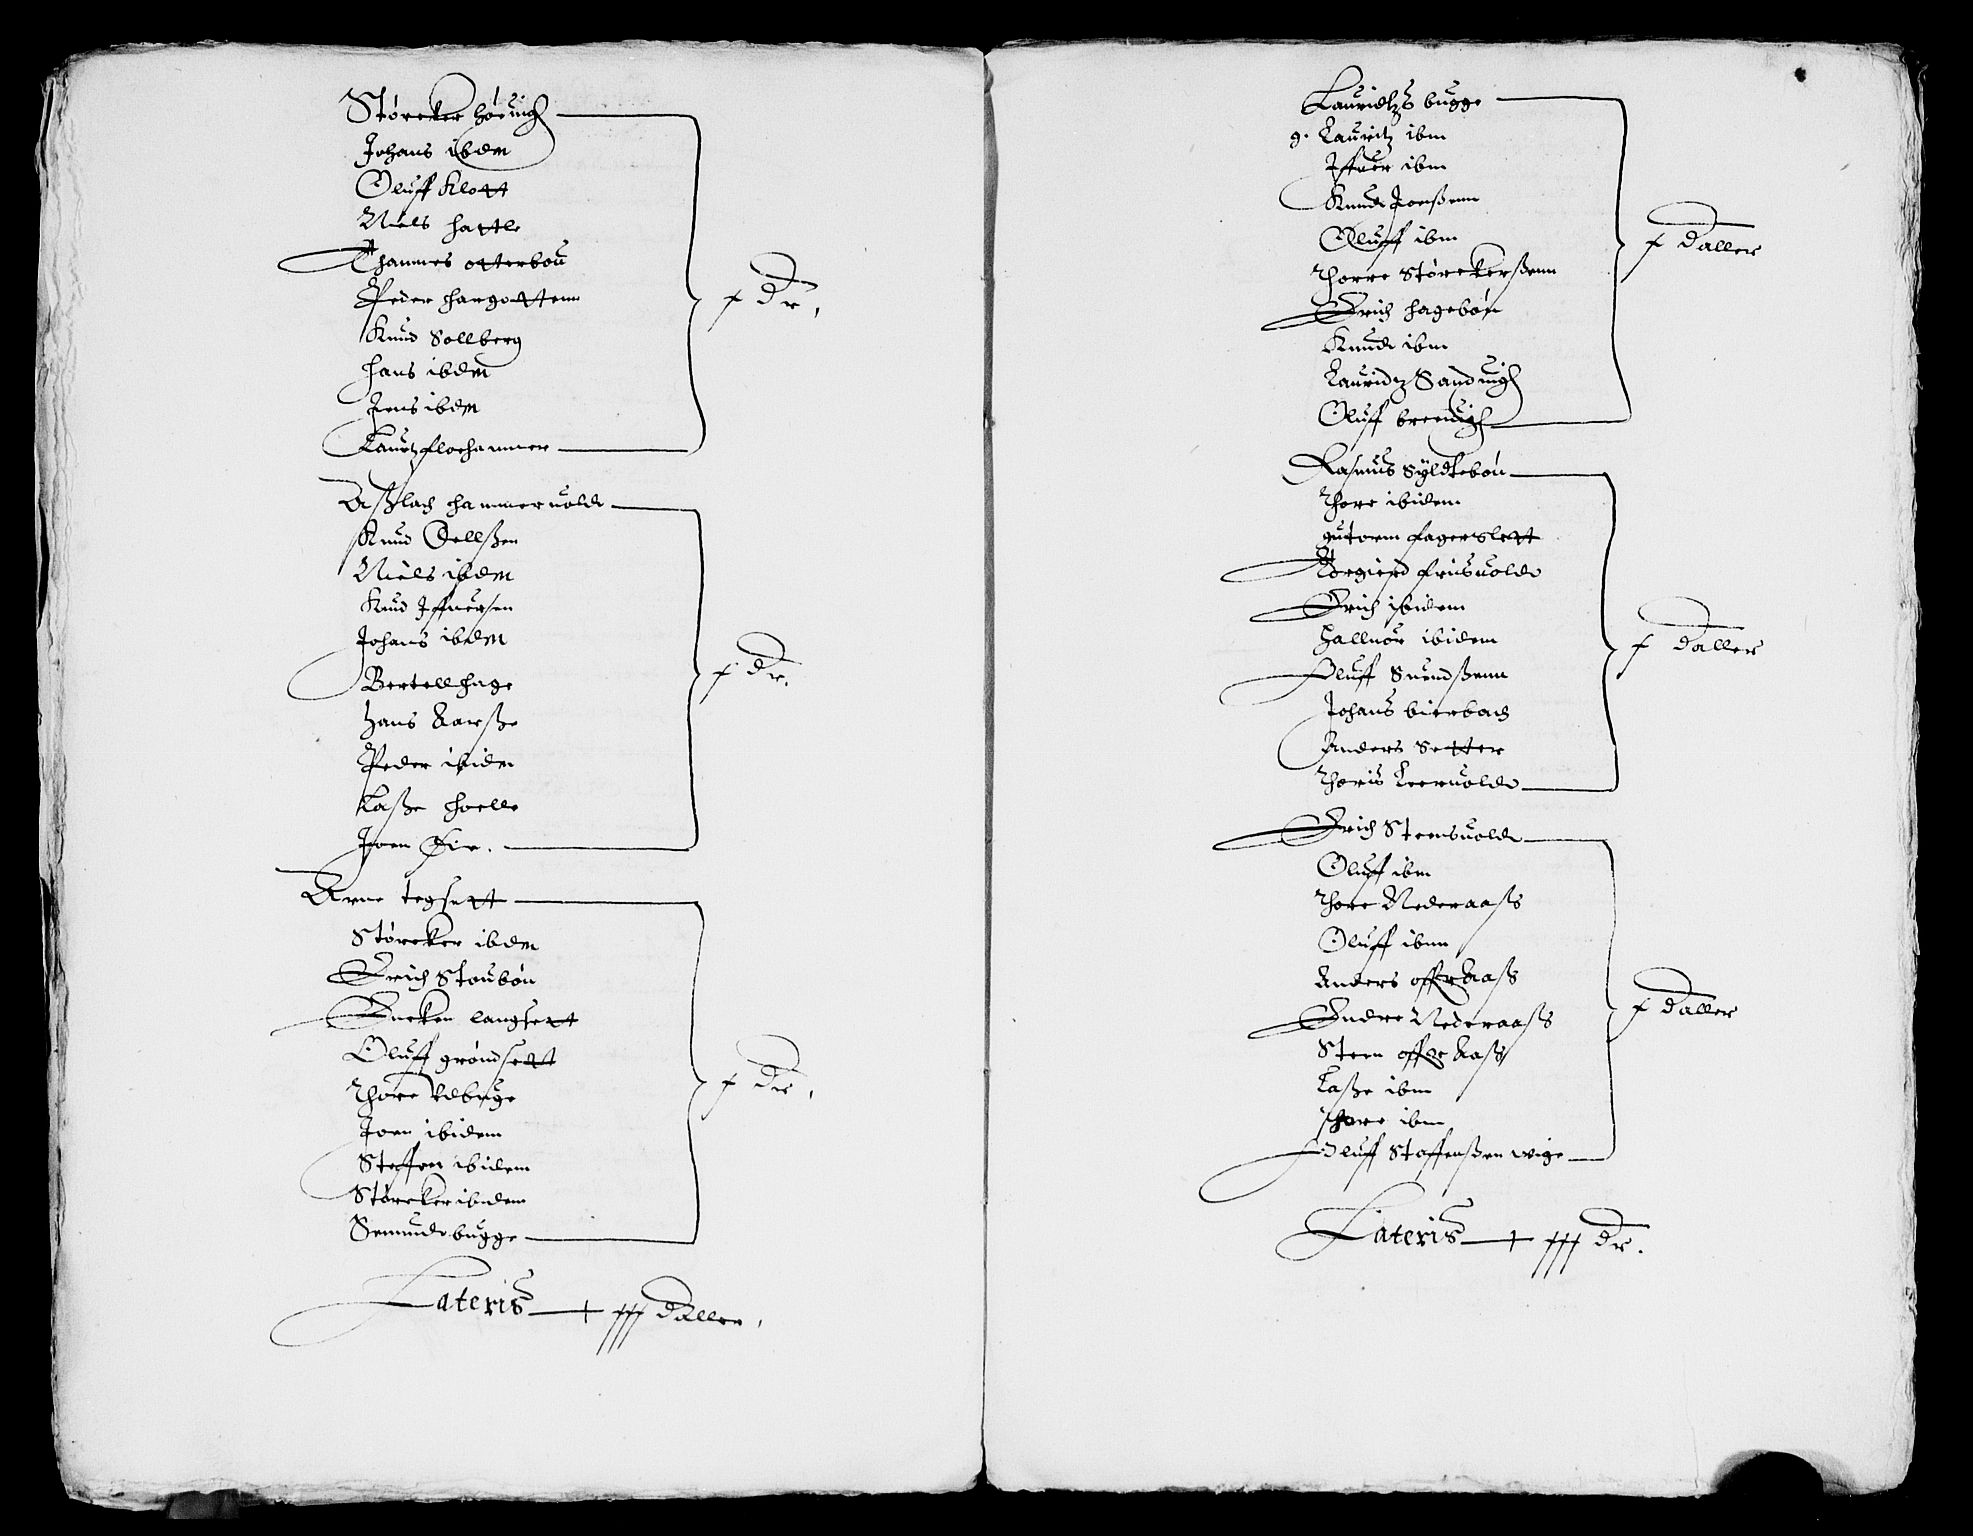 Størcker høiuigh
Johans ibdm
Oluff Klott
Niels hattle
Thammes otterbou
Peder hargottenn
Knud Sollberg
hans ibdm
Jens ibdm
Lauritz flochammer
j Dr.
Aßlach hammeruolde
Knud Oellßen
Niels ibdm
Knud Iffuersen
Johans ibdm
Bertell hage
Hans Karße
Peder ibidm
Laße hoelle
Joen Øie.
j Dr.
Arne tegsett
Størcker ibdm
Erich Stoubøn
Encken langsett
Oluff grøndsett
Thore Vdbuge
Joen ibidem
Steffen ibidem
Størcker ibidem
Semunde bugge
j Dr.
Lateris — jjj Daller.
Lauridtzs bugge
g. Lauritz ibm
Iffuer ibm
Knud Joenßenn
Oluff ibm
Thorre Størckerßenn
Erich hagebøn
Knud ibm
Lauridtz Sanduigh
Oluff breeuigh
j Daller
Rasmus Syltebøn
Thore ibidem
gutorm fagerslett
Torgierd friisuolde
Erich ibidem
Halluor ibidem
Oluff Suendßenn
Johans bierbach
Anders Setter
Thoris Leeruolde
j Daller
Erich Steensuolde
Oluff ibm
Thore Nederaaß
Oluff ibm
Anders offer Aaß
Endre Nederaaß
Steen offer Aaß
Laße ibm
Thore ibm
Oluff Staffenßen wige
j Daller
Lateris — jjj Dr.